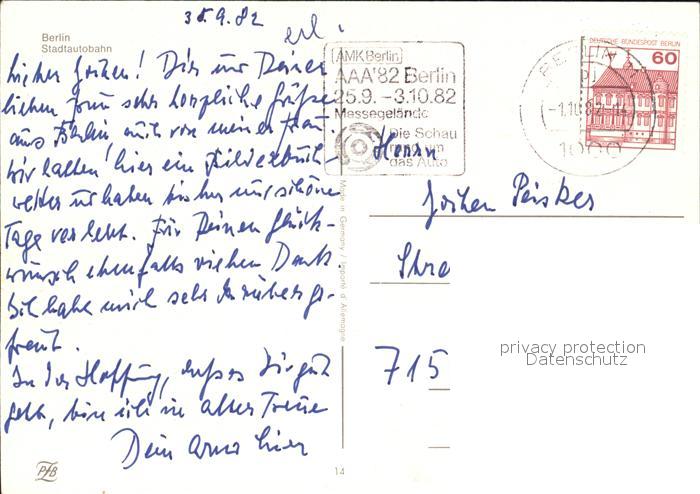 30.9.82
erl.
Berlin
Stadtautobahn
Lieber Jochen! Dir und Deiner
lieben Frau sehr herzliche Grüße
aus Berlin auch von meiner Frau.
Wir hatten hier ein Bilderbuch-
wetter und haben bisher nur schöne
Tage verlebt. Für Deinen Glück-
wunsch ebenfalls vielen Dank.
Ich habe mich sehr darüber ge-
freut.
In der Hoffnung, daß es Dir gut
geht, bin ich in alter Treue
Dein
PFB
14
Made in Germany / Importé d'Allemagne
AMK Berlin
AAA'82 Berlin
25.9. – 3.10.82
Messegelände
Die Schau
rund um
das Auto
BERLIN
-1.10.82
1000
DEUTSCHE BUNDESPOST BERLIN
60
Herrn
Jochen
715
privacy protection
Datenschutz